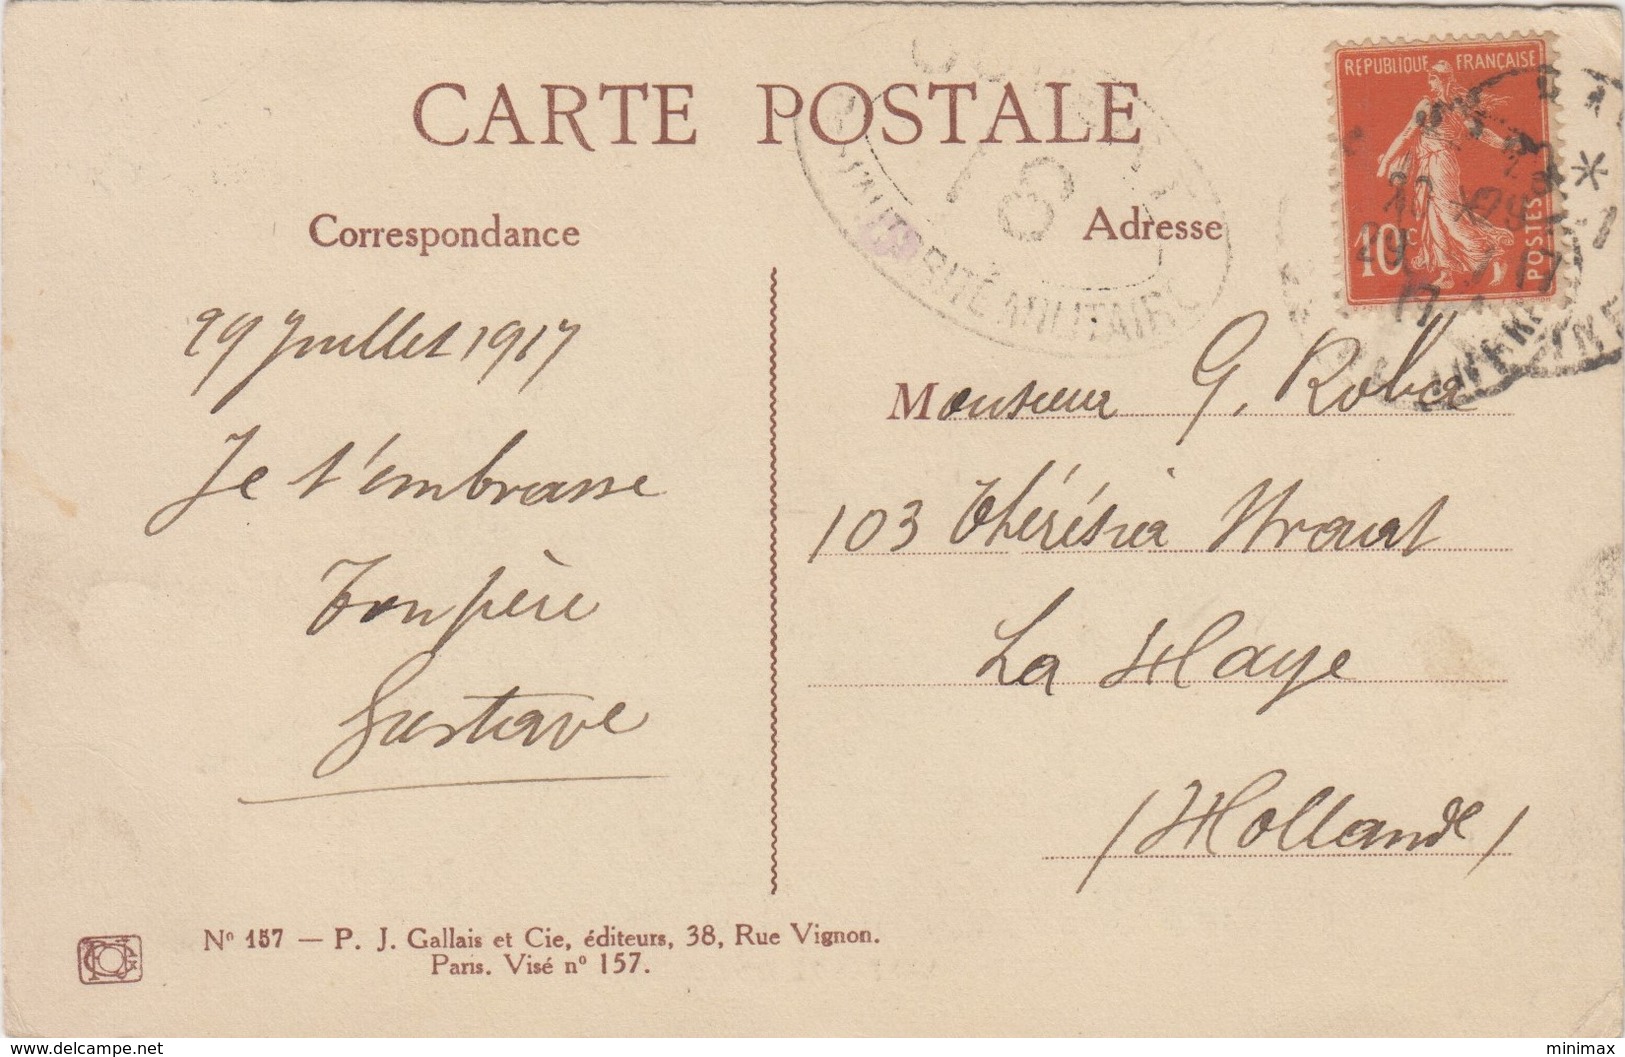 CARTE POSTALE
Correspondance
Adresse
RÉPUBLIQUE FRANÇAISE
10c
POSTES
18
L'AUTORITÉ MILITAIRE
29 Juillet 1917
Je t'embrasse
Ton père
Gustave
Monsieur G. Roba
103 Thérésia Straat
La Haye
(Hollande)
Nº 157 — P. J. Gallais et Cie, éditeurs, 38, Rue Vignon.
Paris. Visé nº 157.
www.delcampe.net
minimax